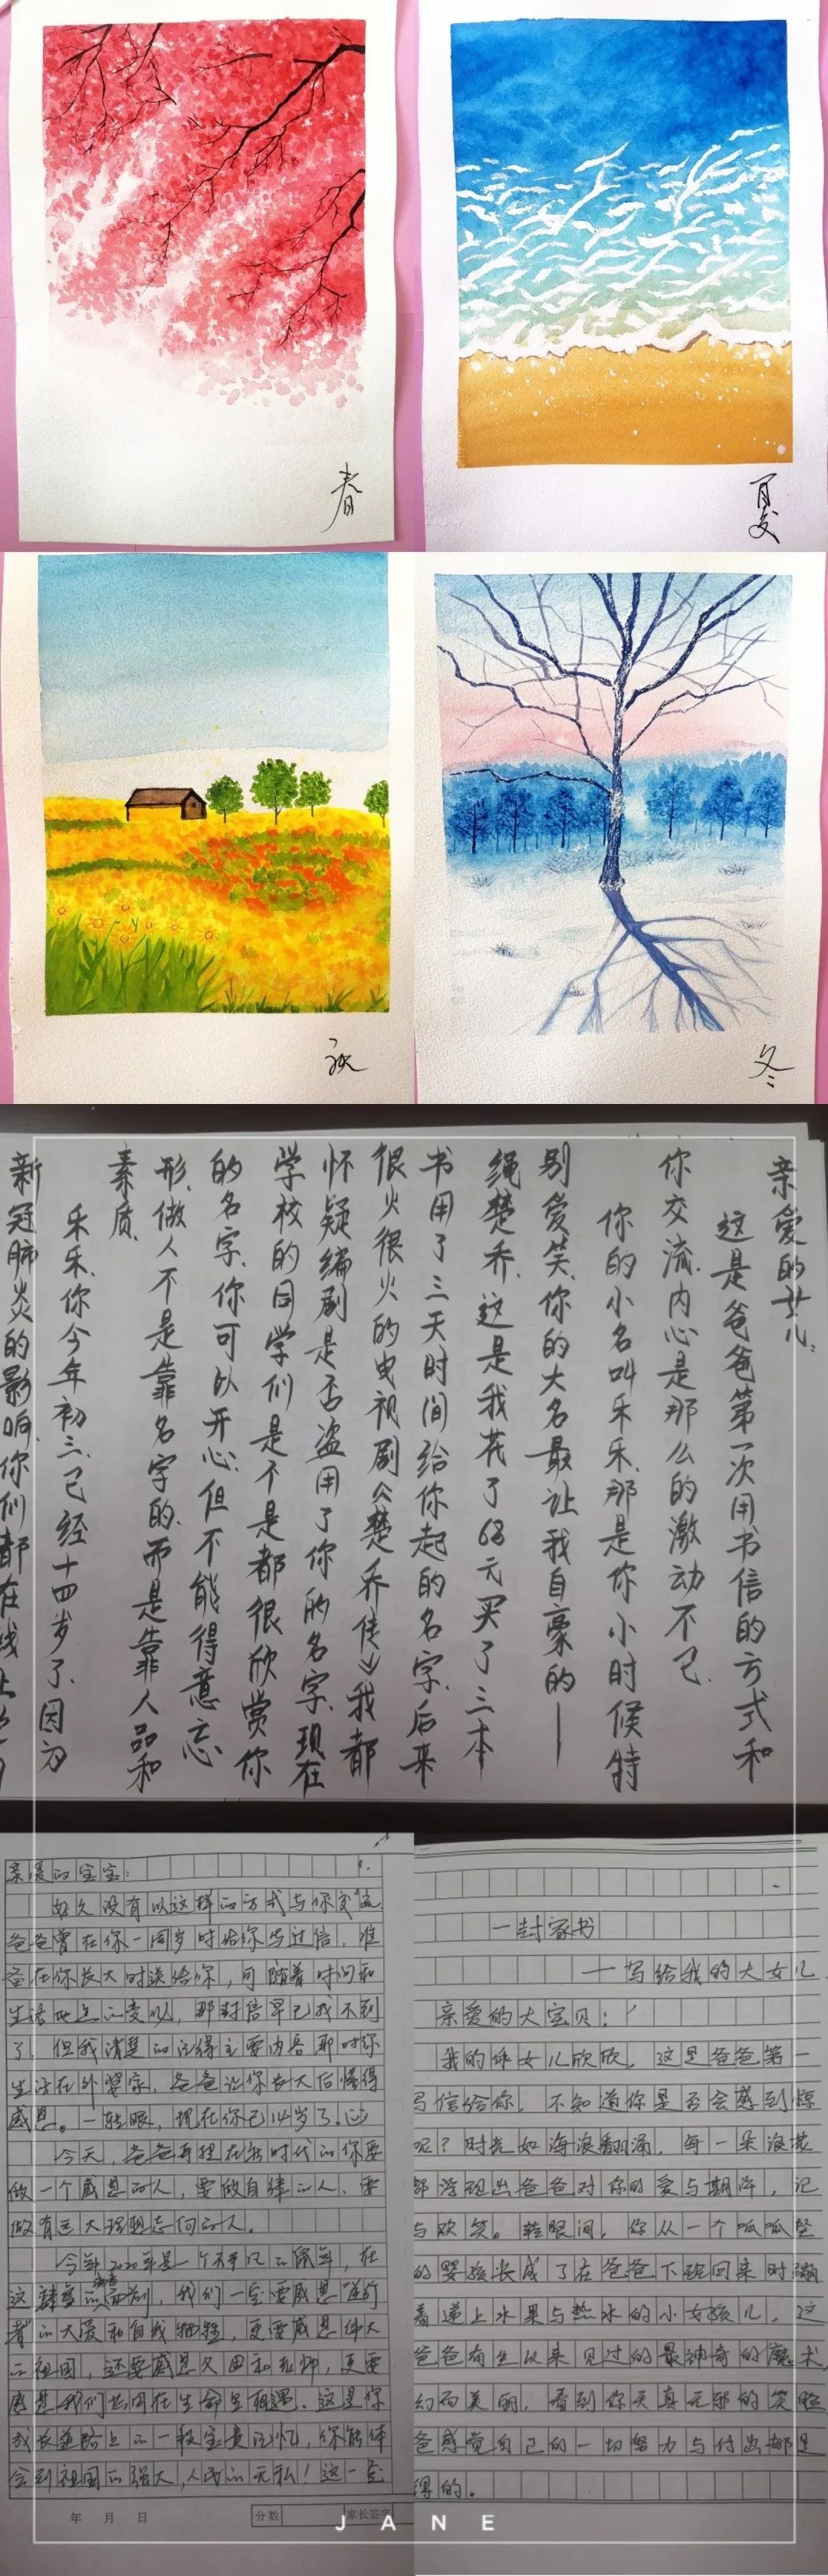 春
夏
秋
冬
亲爱的女儿:
这是爸爸第一次用书信的方式和
你交流,内心是那么的激动不已.
你的小名叫乐乐,那是你小时候特
别爱笑,你的大名最让我自豪的——
绳楚乔,这是我花了68元买了三本
书用了三天时间给你起的名字,后来
很火很火的电视剧《楚乔传》我都
怀疑编剧是否盗用了你的名字,现在
学校的同学们是不是都很欣赏你
的名字,你可以开心,但不能得意忘
形,做人不是靠名字的,而是靠人品和
素质.
乐乐,你今年初三,已经十四岁了,因为
新冠肺炎的影响,你们都在线上
亲爱的宝宝:
好久没有以这样的方式与你交流.
爸爸曾在你一周岁时给你写过信,准
备在你长大时读给你,可随着时间和
生活地点的变化,那封信早已找不到
了,但我清楚的记得主要内容,那时你
生活在外婆家,爸爸让你长大后懂得
感恩。一转眼,现在你已14岁了,
今天,爸爸再提在新时代的你要
做一个感恩的人,要做自律的人,要
做有远大理想志向的人。
今年2020年是一个不平凡的鼠年,在
这肆虐的病毒面前,我们一定要感恩逆行
者的大爱和自我牺牲,更要感恩伟大
的祖国,还要感恩父母和老师,更要
感恩我们共同在生命里相遇.这是你
成长道路上的一段宝贵记忆,你能体
会到祖国的强大,人民的无私!这一定
年 月 日 分数 家长签字
一封家书
——写给我的大女儿
亲爱的大宝贝:
我的乖女儿欣欣,这是爸爸第一
写信给你,不知道你是否会感到惊
呢?时光如海浪翻涌,每一朵浪花
都浮现出爸爸对你的爱与期许,记
与欢笑。转眼间,你从一个呱呱坠
的婴孩长成了在爸爸下班回来时蹦
着递上水果与热水的小女孩儿,这
爸爸有生以来见过的最神奇的魔术,
幻而美丽,看到你天真无邪的笑脸
爸感觉自己的一切努力与付出都是
得的。
JANE